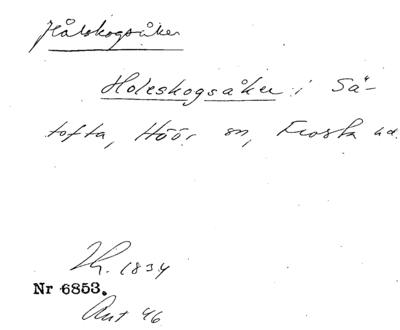 Hålskogsåker
Holeskogsåker i Sä-
tofta, Höör sn, Frosta hd.
Lh. 1834
Nr 6853.
Ant 46